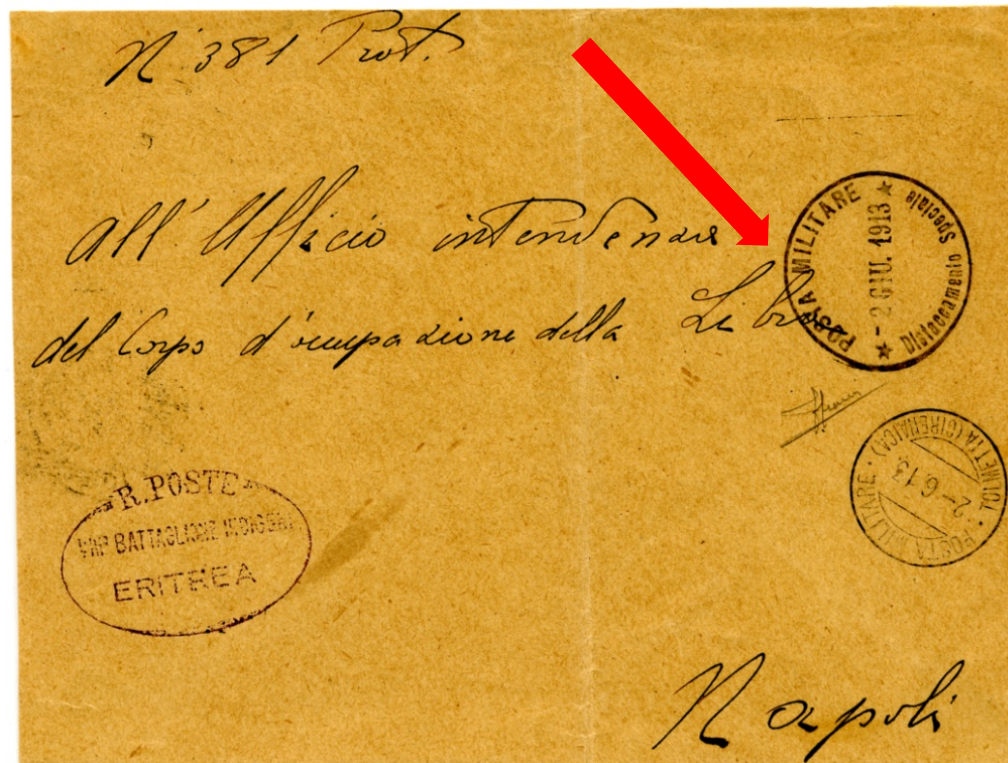 N. 381 Prot.
All' Ufficio intendenza
del Corpo d'occupazione della Libia
POSTA MILITARE
- 2 GIU. 1913
Distaccamento Speciale
POSTA MILITARE · TOLMETTA (CIRENAICA) ·
2-6 13
R. POSTE
BATTAGLIONE INDIGENI
ERITREA
Napoli